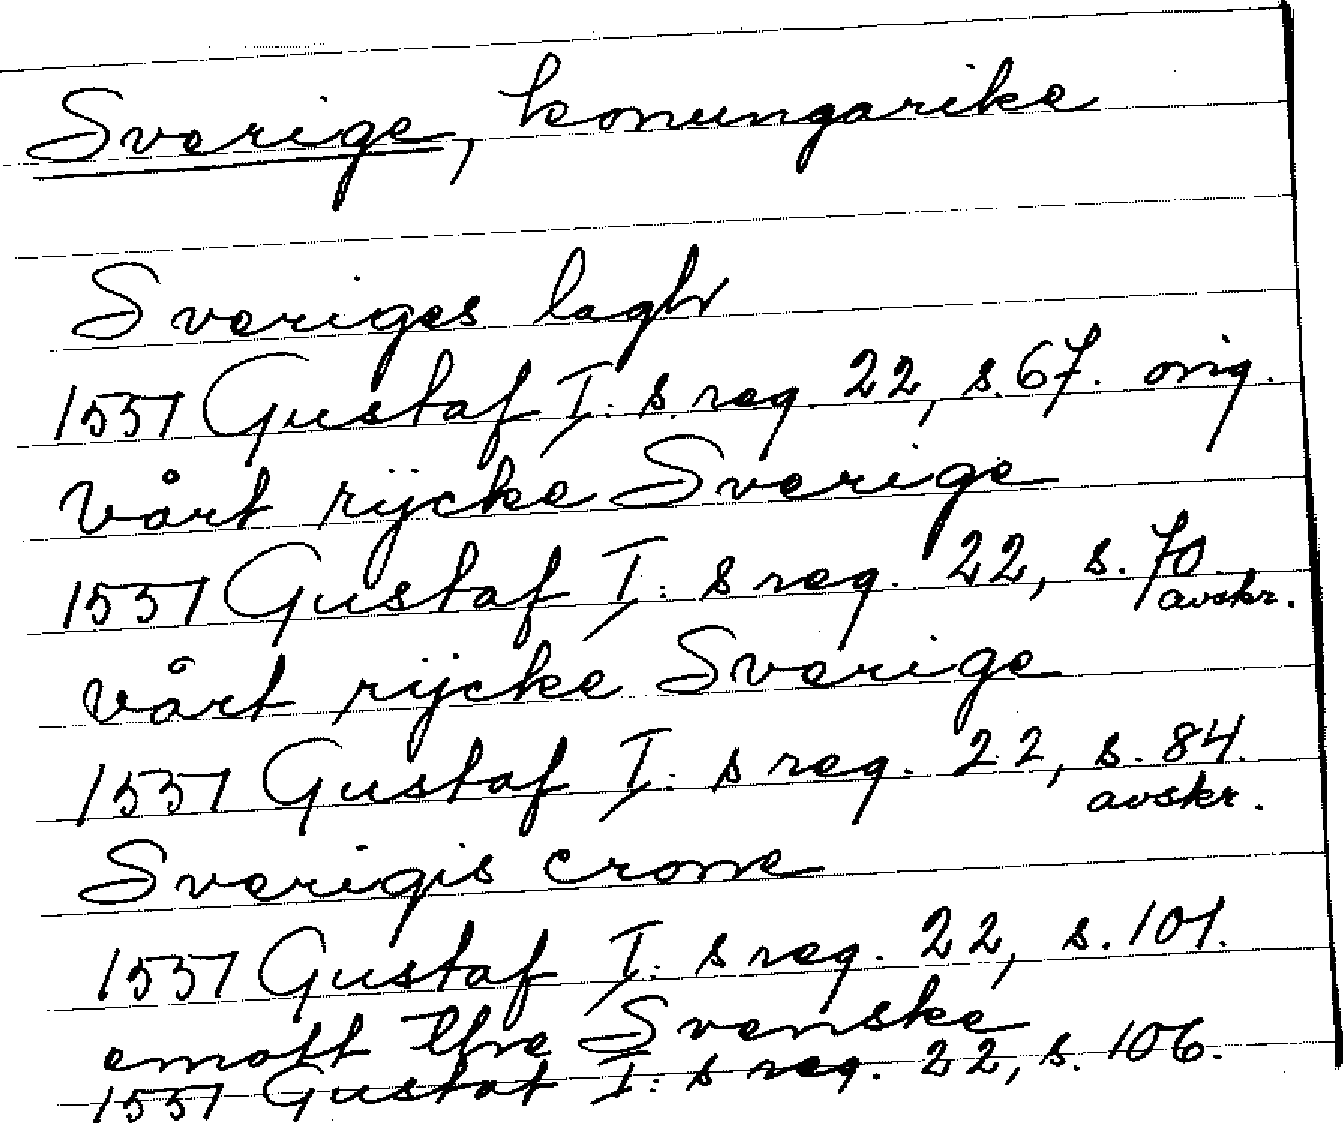 Sverige, konungarike
Sveriges laghr
1551 Gustaf I:s reg. 22, s. 67. orig.
vårt rijcke Sverige
1551 Gustaf I:s reg. 22, s. 70.
avskr.
vårt rijcke Sverige
1551 Gustaf I:s reg. 22, s. 84.
avskr.
Sverigis crone
1551 Gustaf I:s reg. 22, s. 101.
emott the Svenske
1551 Gustaf I:s reg. 22, s. 106.